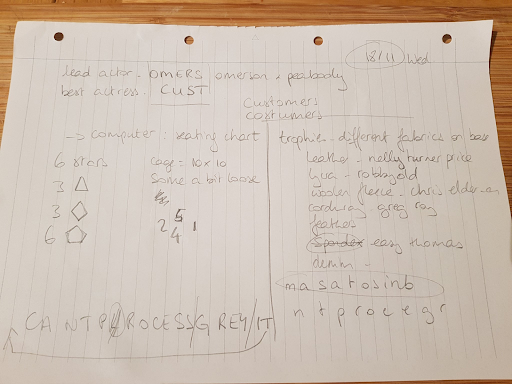 18/11 Wed
lead actor. OMERS omerson. peabody
best actress. CUST
Customers
costumers
→ computer : seating chart
6 stars
3 △
3 ◇
6 ⬠
cage = 10x10
Some a bit loose
5
2 4 1
trophie - different fabrics on base
leather - nelly turner price
lycra - robbgold
woolen fleece - chris elder
corduroy greg ray
feathers
Spandex easy thomas
denim -
masatosinb
ntprocegr
CANTP ROCESS/GREY/IT